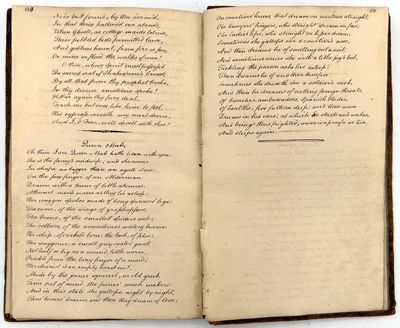 64
Ne'er be I found, by thee o'eraw'd,
In that thrice hallow'd eve abroad,
When Ghosts, as cottage maids believe,
Their pebbled beds permitted leave,
And goblins haunt, from fire, or fen,
Or mine, or flood, the walks of men!
O thou, whose spirit most possest
The sacred seat of Shakespeare's breast!
By all that from thy prophet broke,
In thy divine emotions spoke!
Hither again thy fury deal,
Teach me but once like him to feel,
His cypress wreath my meed decree,
And I, O Fear, will dwell with thee!
Queen Mab.
Oh then I see Queen Mab hath been with you.
She is the fancy's midwife, and she comes
In shape no bigger than an agate stone
On the fore finger of an Alderman,
Drawn with a team of little atomies,
Athwart men's noses as they lie asleep:
Her waggon spokes made of long spinners' legs;
The cover, of the wings of grasshoppers;
The traces, of the smallest spider's web;
The collars, of the moonshine's watery beams;
Her whip, of cricket's bone; the lash, of film;
Her waggoner, a small grey coated gnat,
Not half so big as a round little worm,
Prick'd from the lazy finger of a maid;
Her chariot is an empty hazel nut,
Made by the joiner squirrel, or old grub,
Time out of mind the fairies' coach makers.
And in this state she gallops, night by night,
Thro' lovers' brains, and then they dream of love;
65
On courtiers' knees, that dream on curtsies straight;
O'er lawyers' fingers, who straight dream on fees;
O'er ladies' lips, who straight on kisses dream.
Sometimes she gallops o'er a courtier's nose,
And then dreams he of smelling out a suit;
And sometimes comes she with a tithe pig's tail,
Tickling the parson as he lies asleep;
Then dreams he of another benefice:
Sometimes she driveth o'er a soldier's neck,
And then he dreams of cutting foreign throats,
Of breaches, ambuscadoes, Spanish blades,
Of healths five fathom deep; and then anon
Drums in his ears, at which he starts and wakes,
And being thus frighted, swears a prayer or two,
And sleeps again.